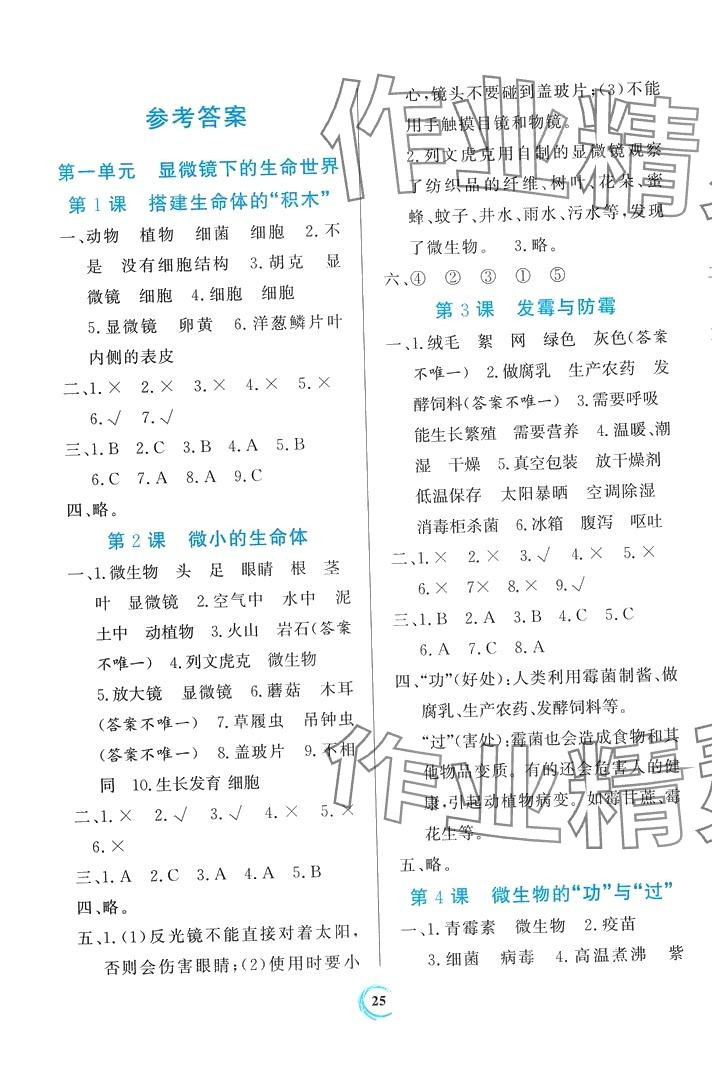 参考答案
第一单元 显微镜下的生命世界
第1课 搭建生命体的“积木”
一、动物 植物 细菌 细胞 2.不
是 没有细胞结构 3.胡克 显
微镜 细胞 4.细胞 细胞
5.显微镜 卵黄 6.洋葱鳞片叶
内侧的表皮
二、1.× 2.× 3.× 4.× 5.×
6.√ 7.√
三、1.B 2.C 3.B 4.A 5.B
6.C 7.A 8.A 9.C
四、略。
第2课 微小的生命体
一、1.微生物 头 足 眼睛 根 茎
叶 显微镜 2.空气中 水中 泥
土中 动植物 3.火山 岩石(答案
不唯一) 4.列文虎克 微生物
5.放大镜 显微镜 6.蘑菇 木耳
(答案不唯一) 7.草履虫 吊钟虫
(答案不唯一) 8.盖玻片 9.不相
同 10.生长发育 细胞
二、1.× 2.√ 3.√ 4.× 5.×
6.×
三、1.A 2.A 3.C 4.A 5.A
四、略。
五、1.(1)反光镜不能直接对着太阳,
否则会伤害眼睛;(2)使用时要小
心,镜头不要碰到盖玻片;(3)不能
用手触摸目镜和物镜。
2.列文虎克用自制的显微镜观察
了纺织品的纤维、树叶、花朵、蜜
蜂、蚊子、井水、雨水、污水等,发现
了微生物。 3.略。
六、④ ② ③ ① ⑤
第3课 发霉与防霉
一、1.绒毛 絮 网 绿色 灰色(答案
不唯一) 2.做腐乳 生产农药 发
酵饲料(答案不唯一) 3.需要呼吸
能生长繁殖 需要营养 4.温暖、潮
湿 干燥 5.真空包装 放干燥剂
低温保存 太阳暴晒 空调除湿
消毒柜杀菌 6.冰箱 腹泻 呕吐
二、1.× 2.× 3.√ 4.√ 5.√
6.× 7× 8.× 9.√
三、1.B 2.A 3.B 4.C 5.C
6.A 7.C 8.A
四、“功”(好处):人类利用霉菌制酱、做
腐乳、生产农药、发酵饲料等。
“过”(害处):霉菌也会造成食物和其
他物品变质。有的还会危害人的健
康,引起动植物病变。如霉甘蔗、霉
花生等。
五、略。
第4课 微生物的“功”与“过”
一、1.青霉素 微生物 2.疫苗
3.细菌 病毒 4.高温煮沸 紫
25
作业精灵
作业精灵